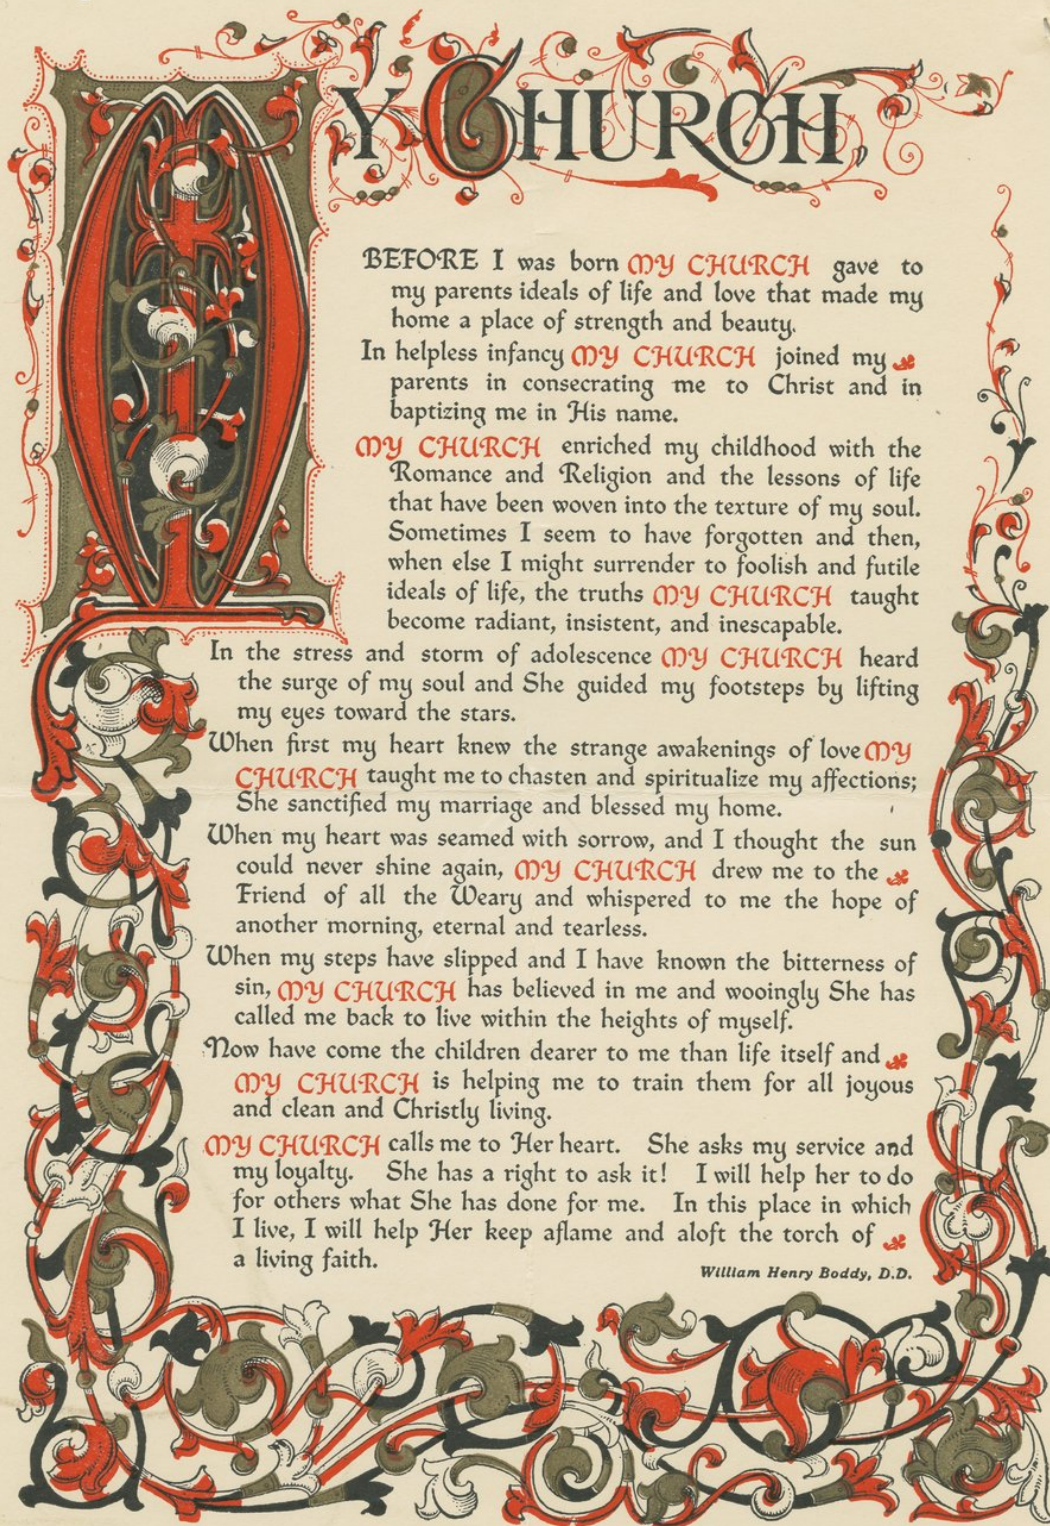 MY CHURCH
BEFORE I was born MY CHURCH gave to
my parents ideals of life and love that made my
home a place of strength and beauty.
In helpless infancy MY CHURCH joined my
parents in consecrating me to Christ and in
baptizing me in His name.
MY CHURCH enriched my childhood with the
Romance and Religion and the lessons of life
that have been woven into the texture of my soul.
Sometimes I seem to have forgotten and then,
when else I might surrender to foolish and futile
ideals of life, the truths MY CHURCH taught
become radiant, insistent, and inescapable.
In the stress and storm of adolescence MY CHURCH heard
the surge of my soul and She guided my footsteps by lifting
my eyes toward the stars.
When first my heart knew the strange awakenings of love MY
CHURCH taught me to chasten and spiritualize my affections;
She sanctified my marriage and blessed my home.
When my heart was seamed with sorrow, and I thought the sun
could never shine again, MY CHURCH drew me to the
Friend of all the Weary and whispered to me the hope of
another morning, eternal and tearless.
When my steps have slipped and I have known the bitterness of
sin, MY CHURCH has believed in me and wooingly She has
called me back to live within the heights of myself.
Now have come the children dearer to me than life itself and
MY CHURCH is helping me to train them for all joyous
and clean and Christly living.
MY CHURCH calls me to Her heart. She asks my service and
my loyalty. She has a right to ask it! I will help her to do
for others what She has done for me. In this place in which
I live, I will help Her keep aflame and aloft the torch of
a living faith.
William Henry Boddy, D.D.